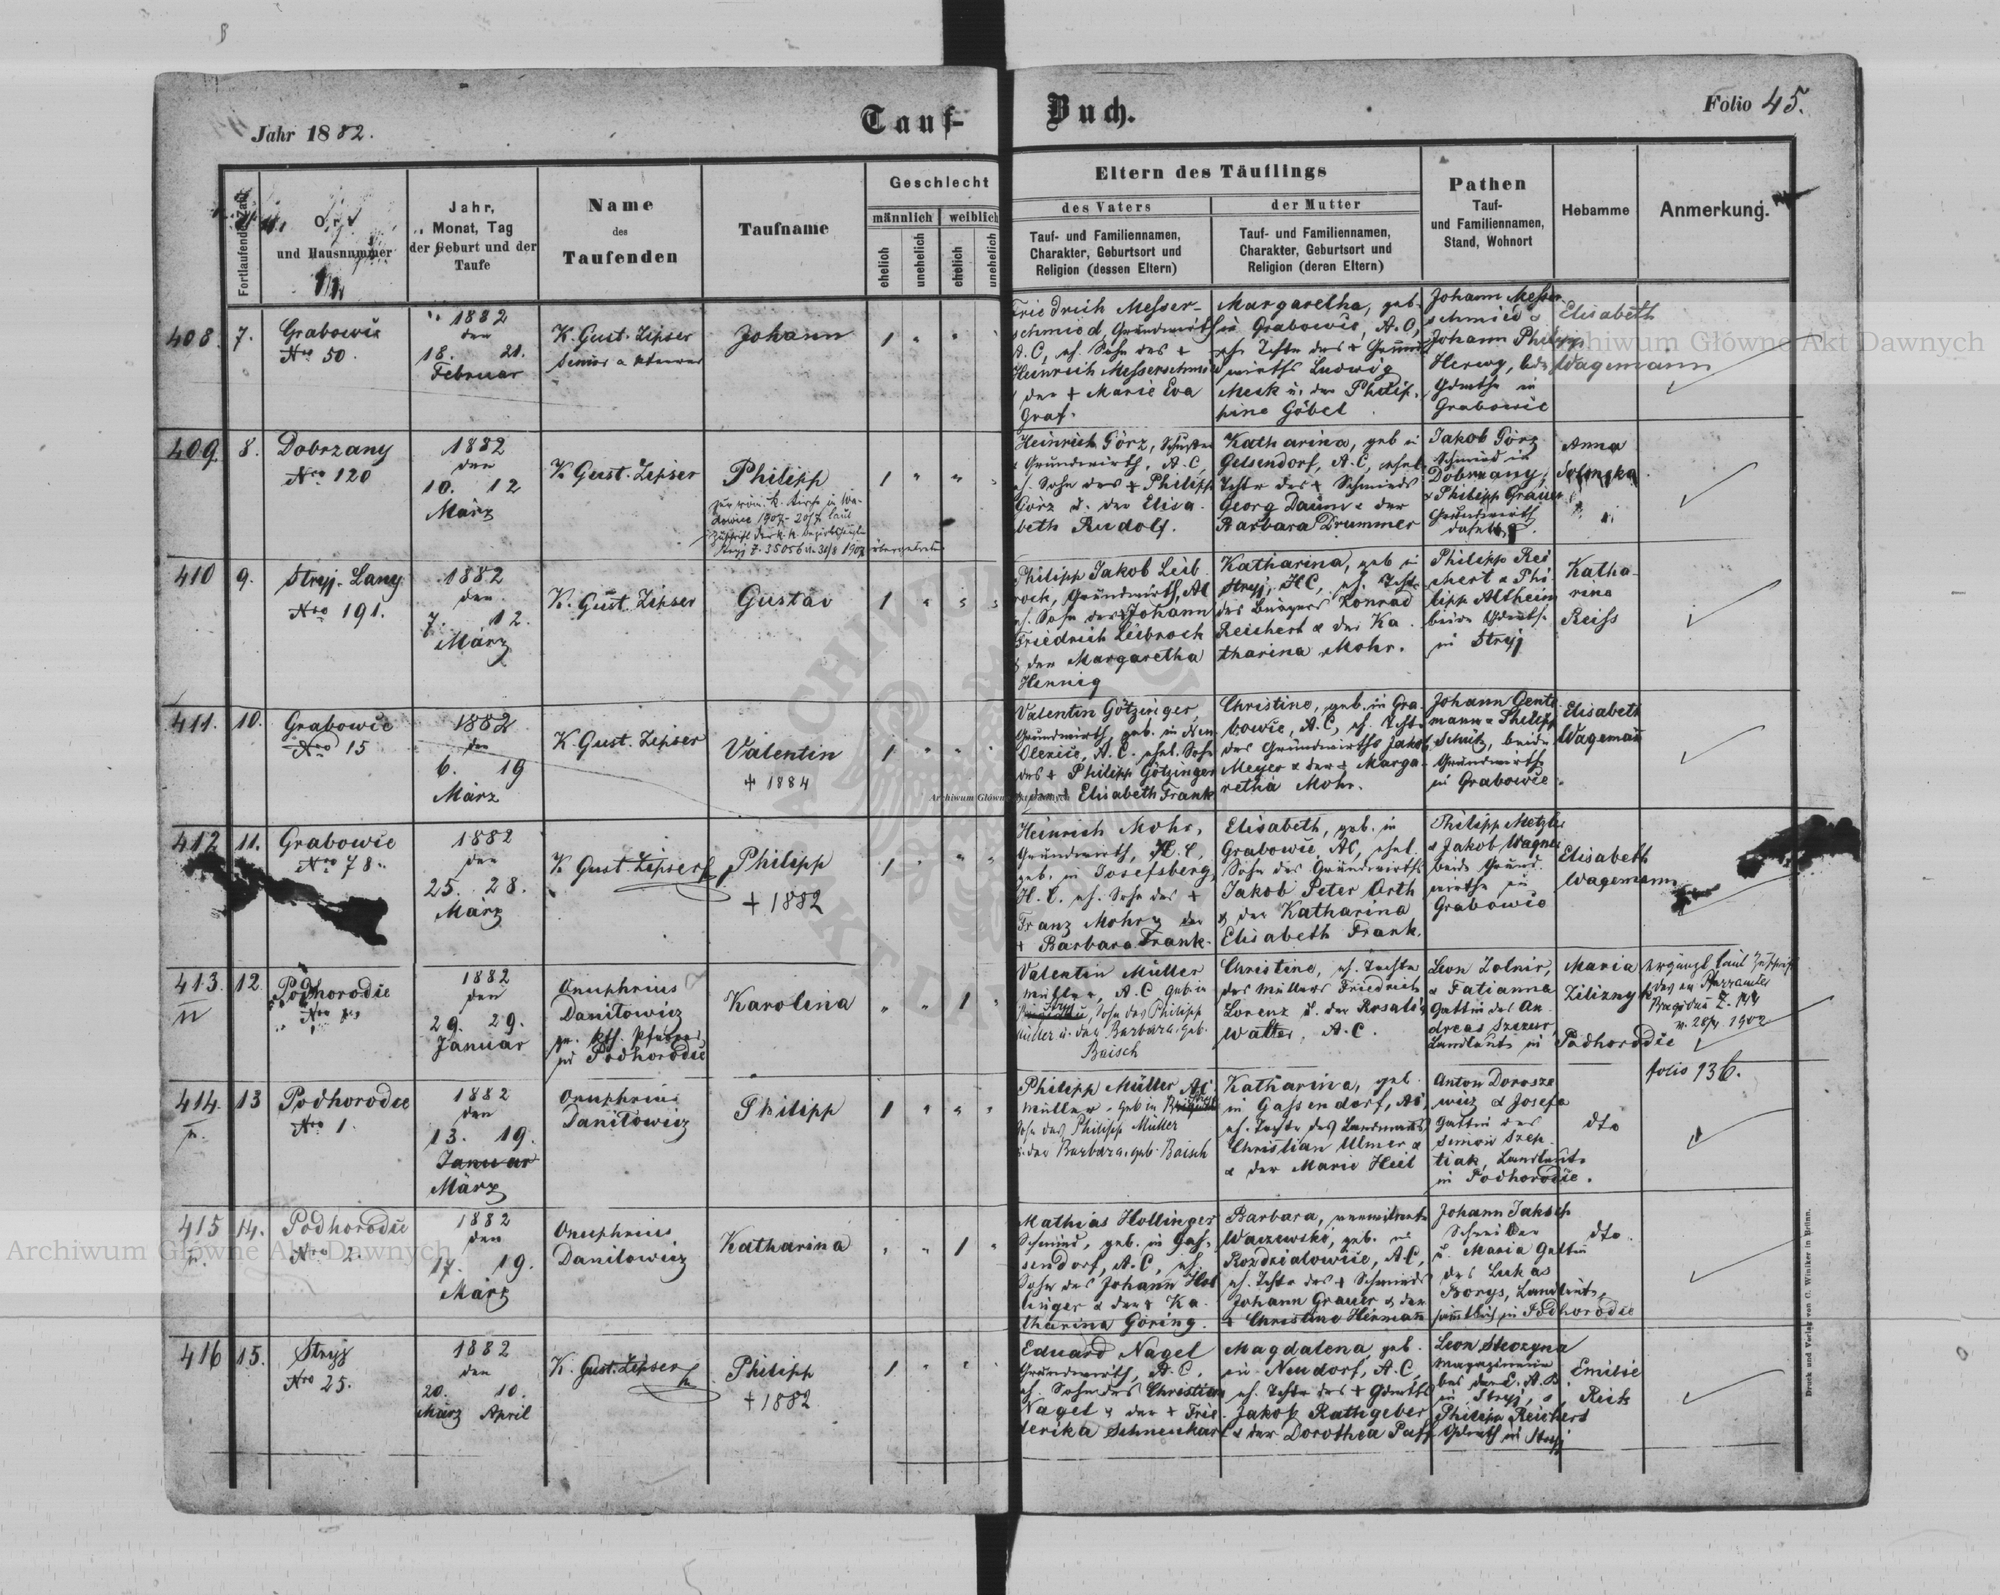 Jahr 1882.
Tauf-Buch.
Folio 45.
Fortlaufende Zahl
Ort
und Hausnummer
Jahr,
Monat, Tag
der Geburt und der
Taufe
Name
des
Taufenden
Taufname
Geschlecht
männlich
weiblich
ehelich
unehelich
ehelich
unehelich
Eltern des Täuflings
des Vaters
Tauf- und Familiennamen,
Charakter, Geburtsort und
Religion (dessen Eltern)
der Mutter
Tauf- und Familiennamen,
Charakter, Geburtsort und
Religion (deren Eltern)
Pathen
Tauf-
und Familiennamen,
Stand, Wohnort
Hebamme
Anmerkung.
408. 7.
Grabowie
Nro 50.
1882
den
18. 21.
Februar
K. Gust. Zipser
Senior
Johann
1
Friedrich Messer-
schmied, Grundwirth
A. C, eh. Sohn des +
Heinrich Messerschmied
der + Marie Eva
Graf.
Margaretha, geb.
in Grabowie, A. C,
eh. Tchtr des + Grund
wirths Ludwig
Meck u. der Philip-
pine Göbel
Johann Messer-
schmied &
Johann Philipp
Herwy, bde
Gdwthe in
Grabowie
Elisabeth
Wagemann
409. 8.
Dobrzany
Nro 120
1882
den
10. 12
März
K. Gust. Zipser
Philipp
1907
1
Heinrich Görz,
& Grundwirth, A. C,
eh. Sohn des + Philipp
Görz u. der Elisa
beth Rudolf.
Katharina, geb in
Gelsendorf, A. C, ehel.
Tchtr des + Schmieds
Georg Daum & der
Barbara Drummer
Jakob Görz
Schmied in
Dobrzany,
& Philipp Grauer
Grundwirth
Anna
410 9.
Stryj-Lany
Nro 191.
1882
den
7. 12.
März
K. Gust. Zipser
Gustav
1
Philipp Jakob Leib
rock, Grundwirth, AC
eh. Sohn des Johann
Friedrich Leibrock
& der Margaretha
Hennig
Katharina, geb in
Stryj, HC, eh. Tchtr
des Bürgers Konrad
Reichert & der Ka
tharina Mohr.
Philipp Rei
chert & Phi
lipp Altheim
beide Gdwth.
in Stryj
Katha
rina
Reiss
411. 10.
Grabowie
Nro 15
1882
den
6. 19
März
K. Gust. Zipser
Valentin
+ 1884
1
Valentin Götzinger,
Grundwirth, geb. in Neu
Olexice, A. C. ehel. Sohn
des + Philipp Götzinger
& der + Elisabeth Frank
Christine, geb. in Gra
bowie, A. C, eh. Tcht.
des Grundwirths Jakob
Meyer & der + Marga-
retha Mohr.
Johann Gente
mann & Philipp
Schütz, beide
Grundwirthe
in Grabowie.
Elisabeth
Wagemañ
412 11.
Grabowie
Nro 78.
1882
den
25. 28.
März
K. Gust. Zipser
Philipp
+ 1882
1
Heinrich Mohr,
Grundwirth, H. C,
geb. in Josefsberg,
H. C. eh. Sohn des +
Franz Mohr & der
+ Barbara Frank.
Elisabeth, geb. in
Grabowie, AC, ehel.
Sohn des Grundwirths
Jakob Peter Orth
& der Katharina
Elisabeth Frank.
Philipp Metzler
& Jakob Wagner
beide Grund
wirthe in
Grabowie
Elisabeth
Wagemann
413 12.
Podhorodie
1882
den
29. 29.
Januar
Onuphrius
Danitowicz
gr. kth. Pfarrer
in Podhorodie
Karolina
1
Valentin Müller
Müller, A. C geb in
Sohn des Philipp
Müller u. der Barbara. geb.
Baisch
Christine, eh. Tochter
des Müllers Friedrich
Lorenz u. der Rosalia
Walter, A. C.
Leon Zolnir,
& Tatianna
Gattin des An
dreas Szezur,
Landleute in Podhorodie
Maria
Ziliznyk
Ergänzt laut Zuschrift
des ev Pfarramtes
1902
folio 136.
414. 13
Podhorodie
Nro 1.
1882
den
13. 19.
Januar
März
Onuphrius
Danitowicz
Philipp
1
Philipp Müller AC
Müller, geb in
Sohn des Philipp Müller
u. der Barbara, geb. Baisch
Katharina, geb.
in Gassendorf, AC,
eh. Tochter des Landmanns
Christian Ulmer &
& der Marie Heil
Anton Dorosze
wicz & Josefa
Gattin des
Simon Szep
tiak, Landleute
in Podhorodie.
dto
415 14.
Podhorodie
Nro 2.
1882
den
17. 19.
März
Onuphrius
Danilowicz
Katharina
1
Mathias Hollinger
Schmied, geb. in Gas-
sendorf, A. C, eh.
Sohn des Johann Hol
linger & der + Ka
tharina Göring.
Barbara, verwitwete
Waczewski, geb. in
Rozdzialowice, A. C,
eh. Tchtr des + Schmieds
Johann Grauer & der
+ Christine Hermann
Johann Jaksch
Schreiber
u. Maria Gattin
des Lukas
Borys, Landleute,
sämtlich in Podhorodie
dto.
416 15.
Stryj
Nro 25.
1882
den
20. 10.
März April
K. Gust. Zipser
Philipp
+ 1882
1
Eduard Nagel
Grundwirth, A. C.
eh. Sohn des Christian
Nagel & der + Frie
derika Schneikart
Magdalena geb.
in Neudorf, A. C,
eh. Tchtr des + Gdwths
Jakob Rathgeber
& der Dorothea Paff
Leon Steozyna
in Stryj, &
Philipp Reichert
Gdwth in Stryj
Emilie
Reich
Druck und Verlag von C. Winiker in Brünn.
Archiwum Główne Akt Dawnych
Archiwum Główne Akt Dawnych
Archiwum Główne Akt Dawnych